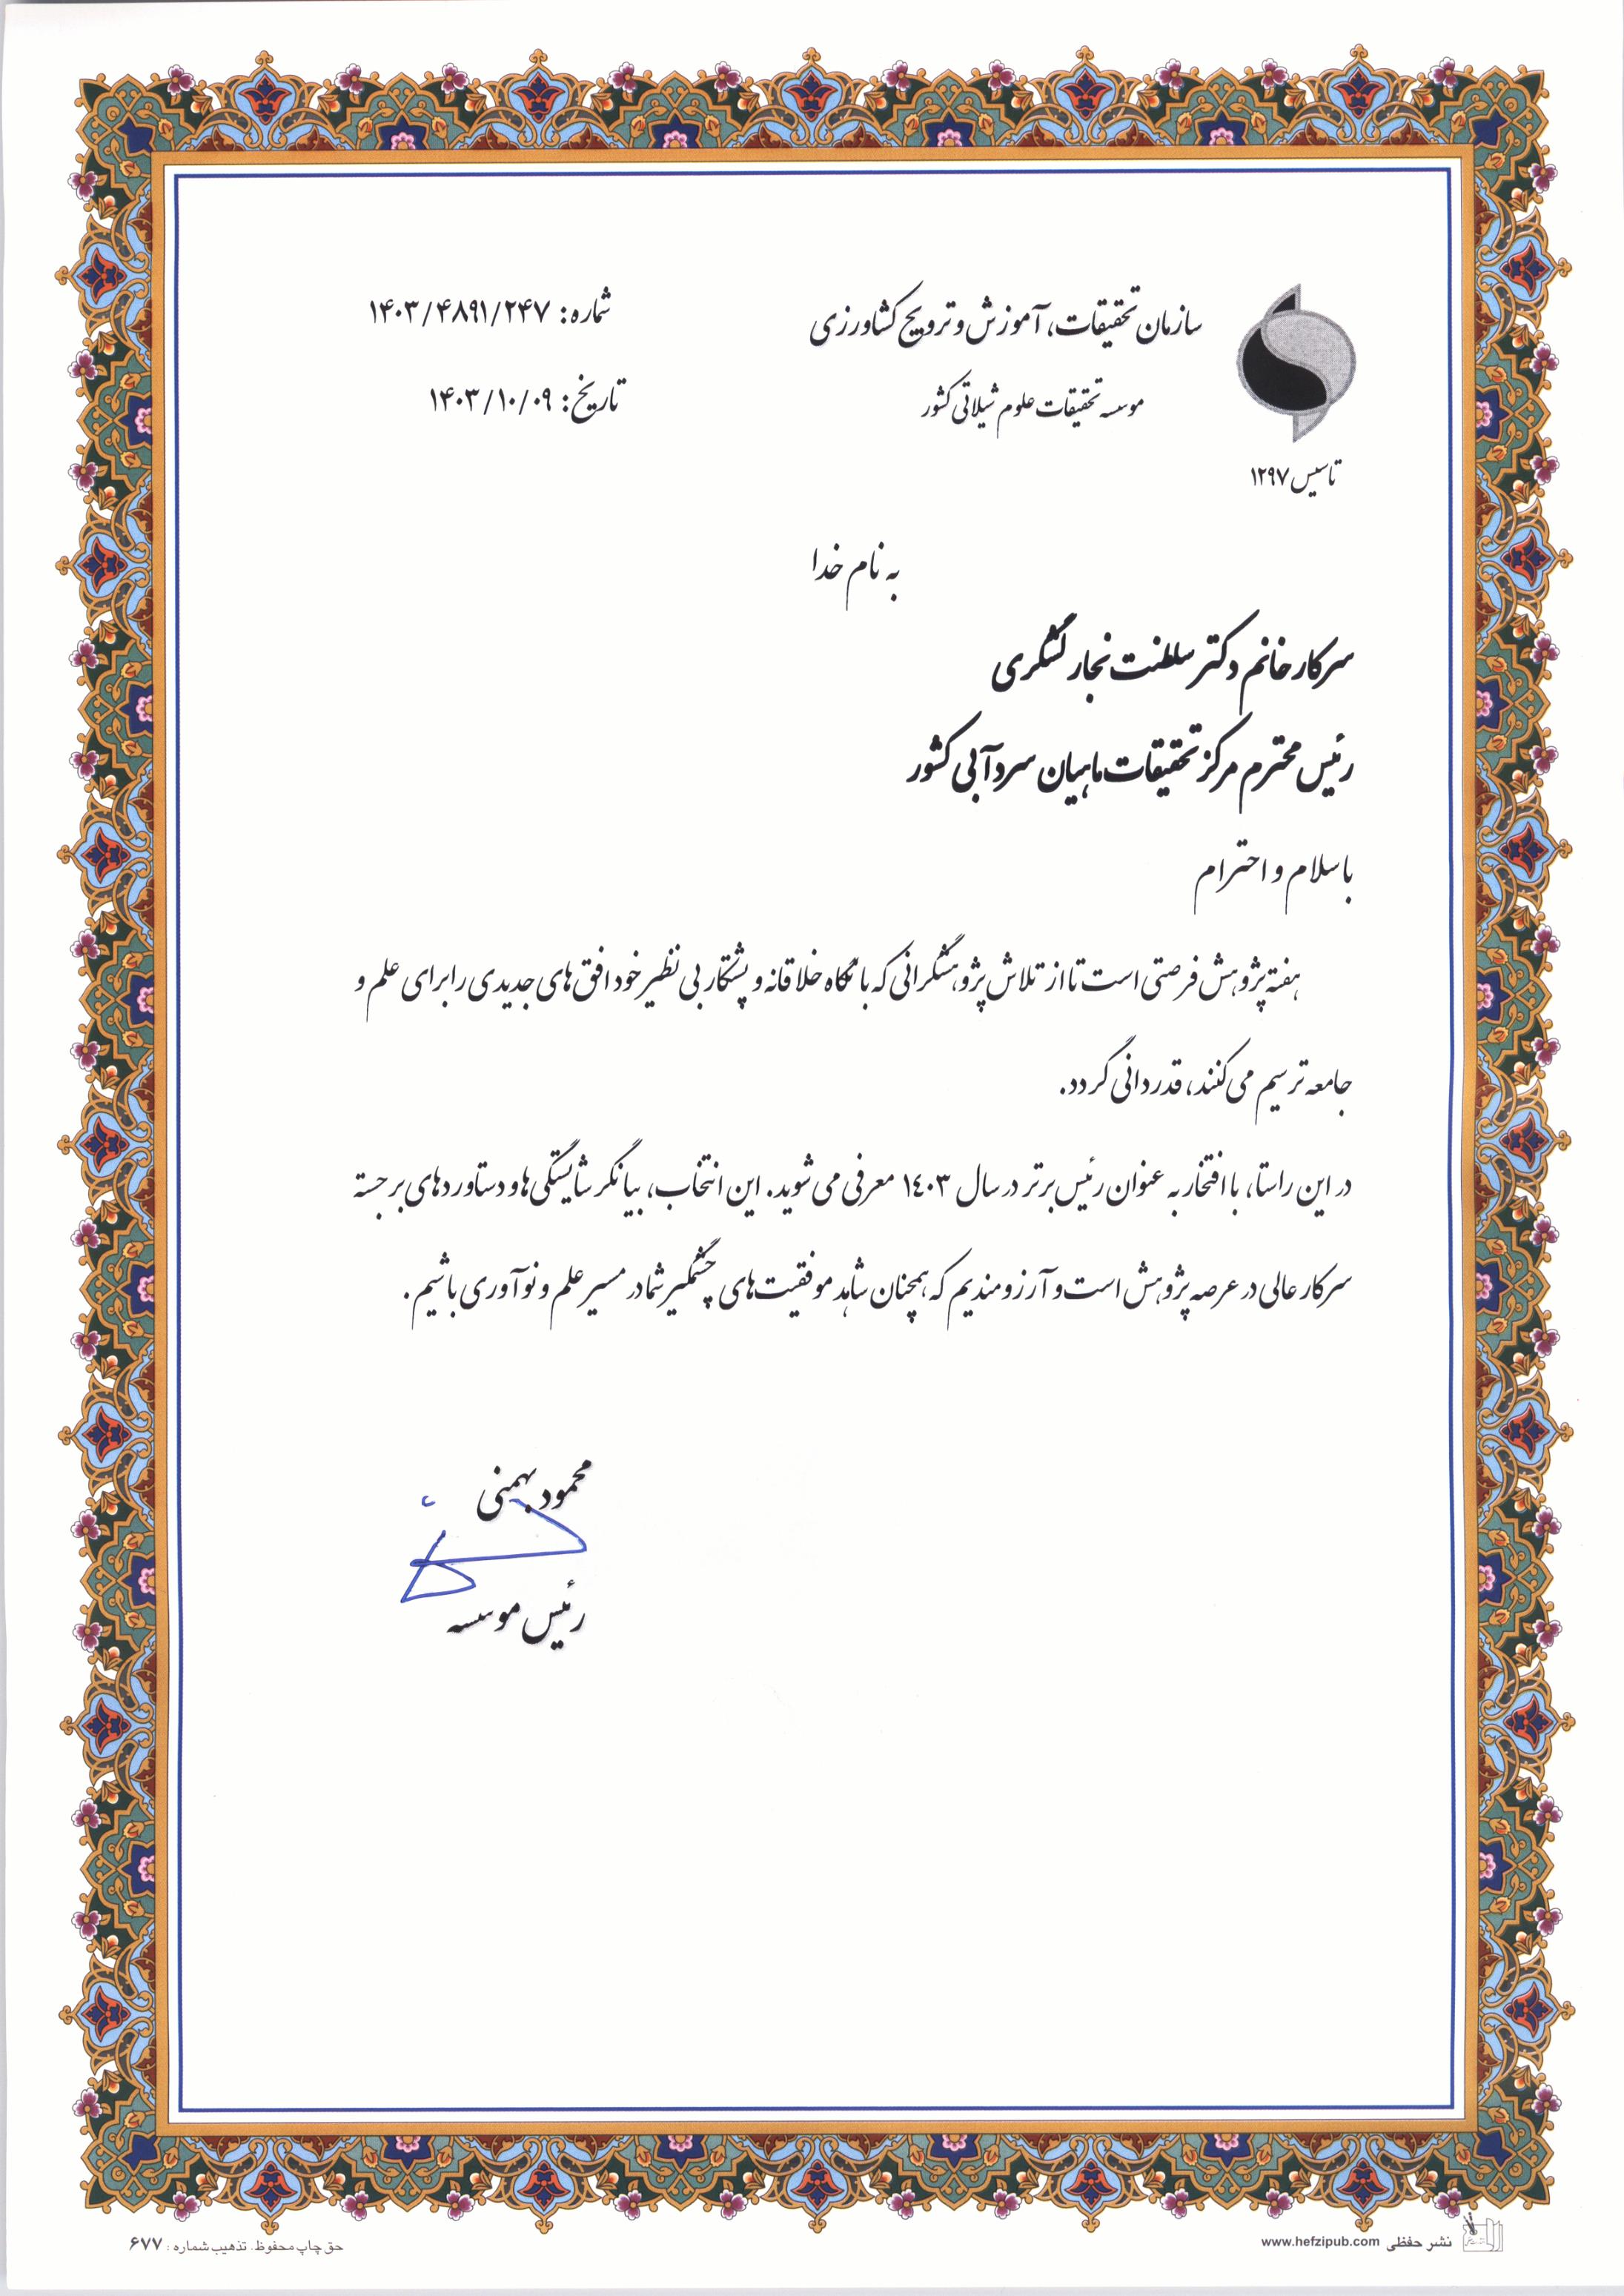 سازمان تحقیقات، آموزش و ترویج کشاورزی
موسسه تحقیقات علوم شیلاتی کشور
تاسیس ۱۲۹۷
شماره: ۱۴۰۳/۴۸۹۱/۲۴۷
تاریخ: ۱۴۰۳/۱۰/۰۹
به نام خدا
سرکار خانم دکتر سلطنت نجار لشگری
رئیس محترم مرکز تحقیقات ماهیان سردآبی کشور
با سلام و احترام
هفته پژوهش فرصتی است تا از تلاش پژوهشگرانی که با نگاه خلاقانه و پشتکار بی نظیر خود افق های جدیدی را برای علم و
جامعه ترسیم می کنند، قدردانی گردد.
در این راستا، با افتخار به عنوان رئیس برتر در سال ۱٤۰۳ معرفی می شوید. این انتخاب، بیانگر شایستگی ها و دستاوردهای برجسته
سرکار عالی در عرصه پژوهش است و آرزومندیم که همچنان شاهد موفقیت های چشمگیر شما در مسیر علم و نوآوری باشیم.
محمود بهمنی
رئیس موسسه
نشر حفظی www.hefzipub.com
حق چاپ محفوظ. تذهیب شماره: ۶۷۷